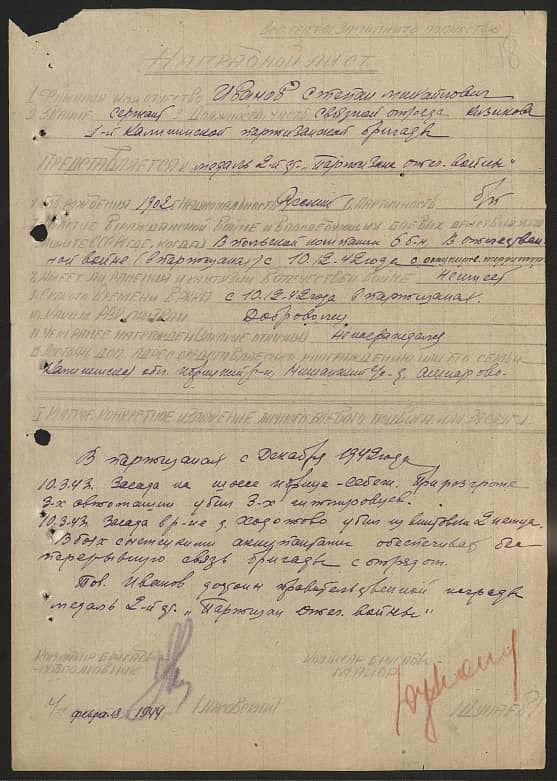 18
НАГРАДНОЙ ЛИСТ
1. Фамилия имя отчество Иванов Степан Михайлович
2. Звание сержант 3. Должность, часть связной отряда
1-й Калининской партизанской бригады
Представляется к медаль 2-й ст. „Партизан отеч. войны"
4. Год рождения 1902 5. Национальность Русский 6. Партийность б/п
7. Участие в гражданской войне и последующих боевых действиях по
защите СССР (где, когда) В польской кампании В отечествен-
ной войне (в партизанах) с 10.12.42 года с
8. Имеет ли ранения и контузии в отечественной войне Не имеет
9. С какого времени в РККА с 10.12.42 года в партизанах.
10. Каким РВК призван Добровольно
11. Чем ранее награжден (за какие отличия) Не награждался
12. Постоян. дом. адрес представляемого к награждению или его семьи
Калининская обл. р-н, с/с д.
I Краткое конкретное изложение личного боевого подвига или заслуг.
В партизанах с Декабря 1942 года
10.3.43. Засада на шоссе Идрица-Себеж. При разгроме
3-х автомашин убил 3-х гитлеровцев.
10.3.43. Засада в р-не д. убил из винтовки 2 немца.
В боях с немецкими оккупантами обеспечивал бес-
перерывную связь бригады с отрядом.
Тов. Иванов достоин правительственной награды
медаль 2-й ст. „Партизан отеч. войны"
Командир бригады
подполковник
Комиссар бригады
майор
4/ февраля 1944